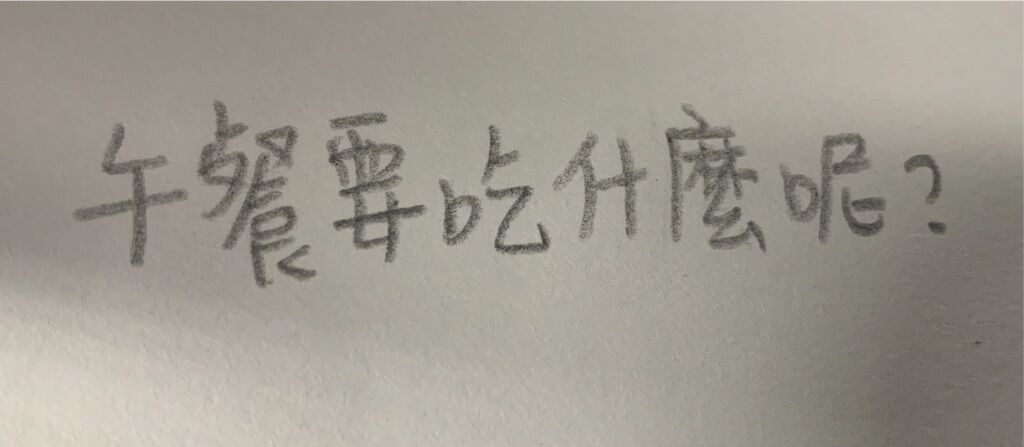 午餐要吃什麼呢?